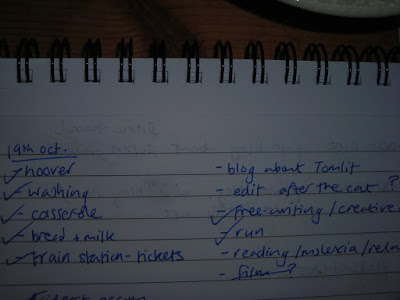 19th oct.
✓ hoover
✓ washing
✓ casserole
✓ bread & milk
✓ train station - tickets
- blog about Tomlit
- edit after the cat ?
✓ free-writing / creative
✓ run
- reading / mslexia / rela
- film ?